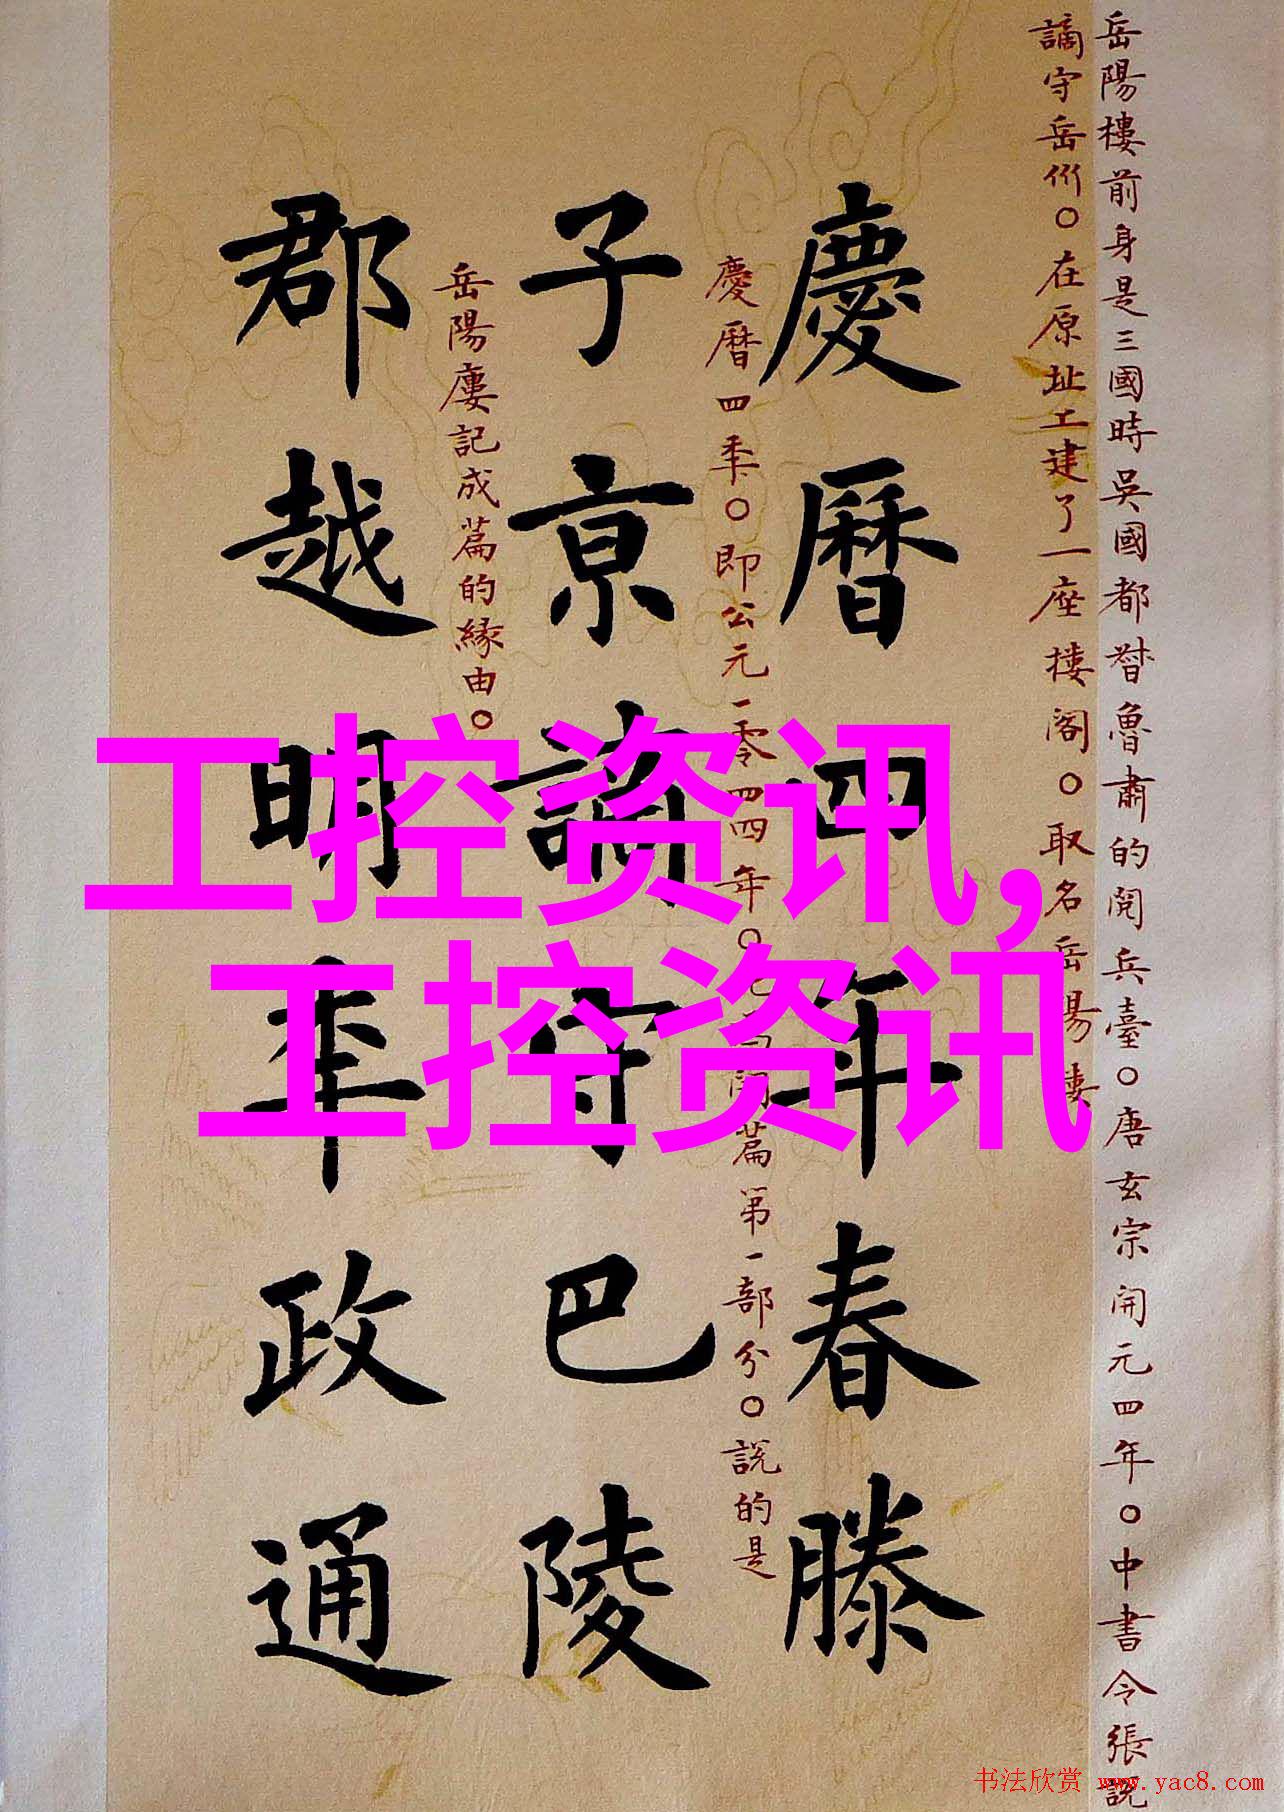 岳陽樓前身是三國時吳國都督魯肅的閱兵臺○唐玄宗開元四年○中書令張說
謫守岳州○在原址上建了一座樓閣○取名岳陽樓
慶曆四年春滕
慶曆四年○即公元一零四四年○ 篇第一部分○說的是
子京謫守巴陵
岳陽廔記成篇的緣由○
郡越明年政通
工控资讯,
工控资讯
书法欣赏 www.yac8.com